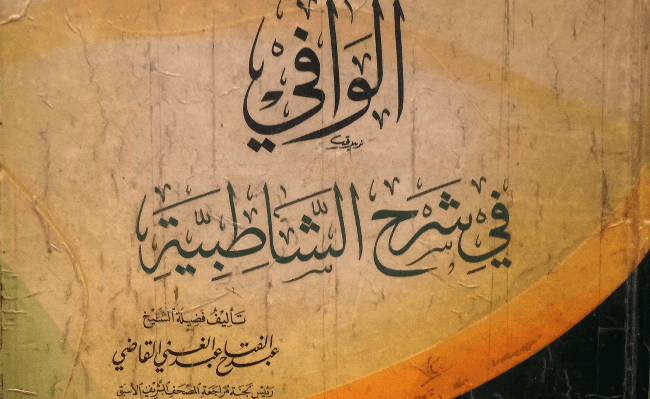 الوَافِي
فِي شَرْحِ الشَّاطِبِيَّةِ
تَأليفُ فَضِيلَة الشَّيْخ
عبد الفتاح عبد الغني القاضي
رئيس لجنة مراجعة المصحف الشريف الأسبق